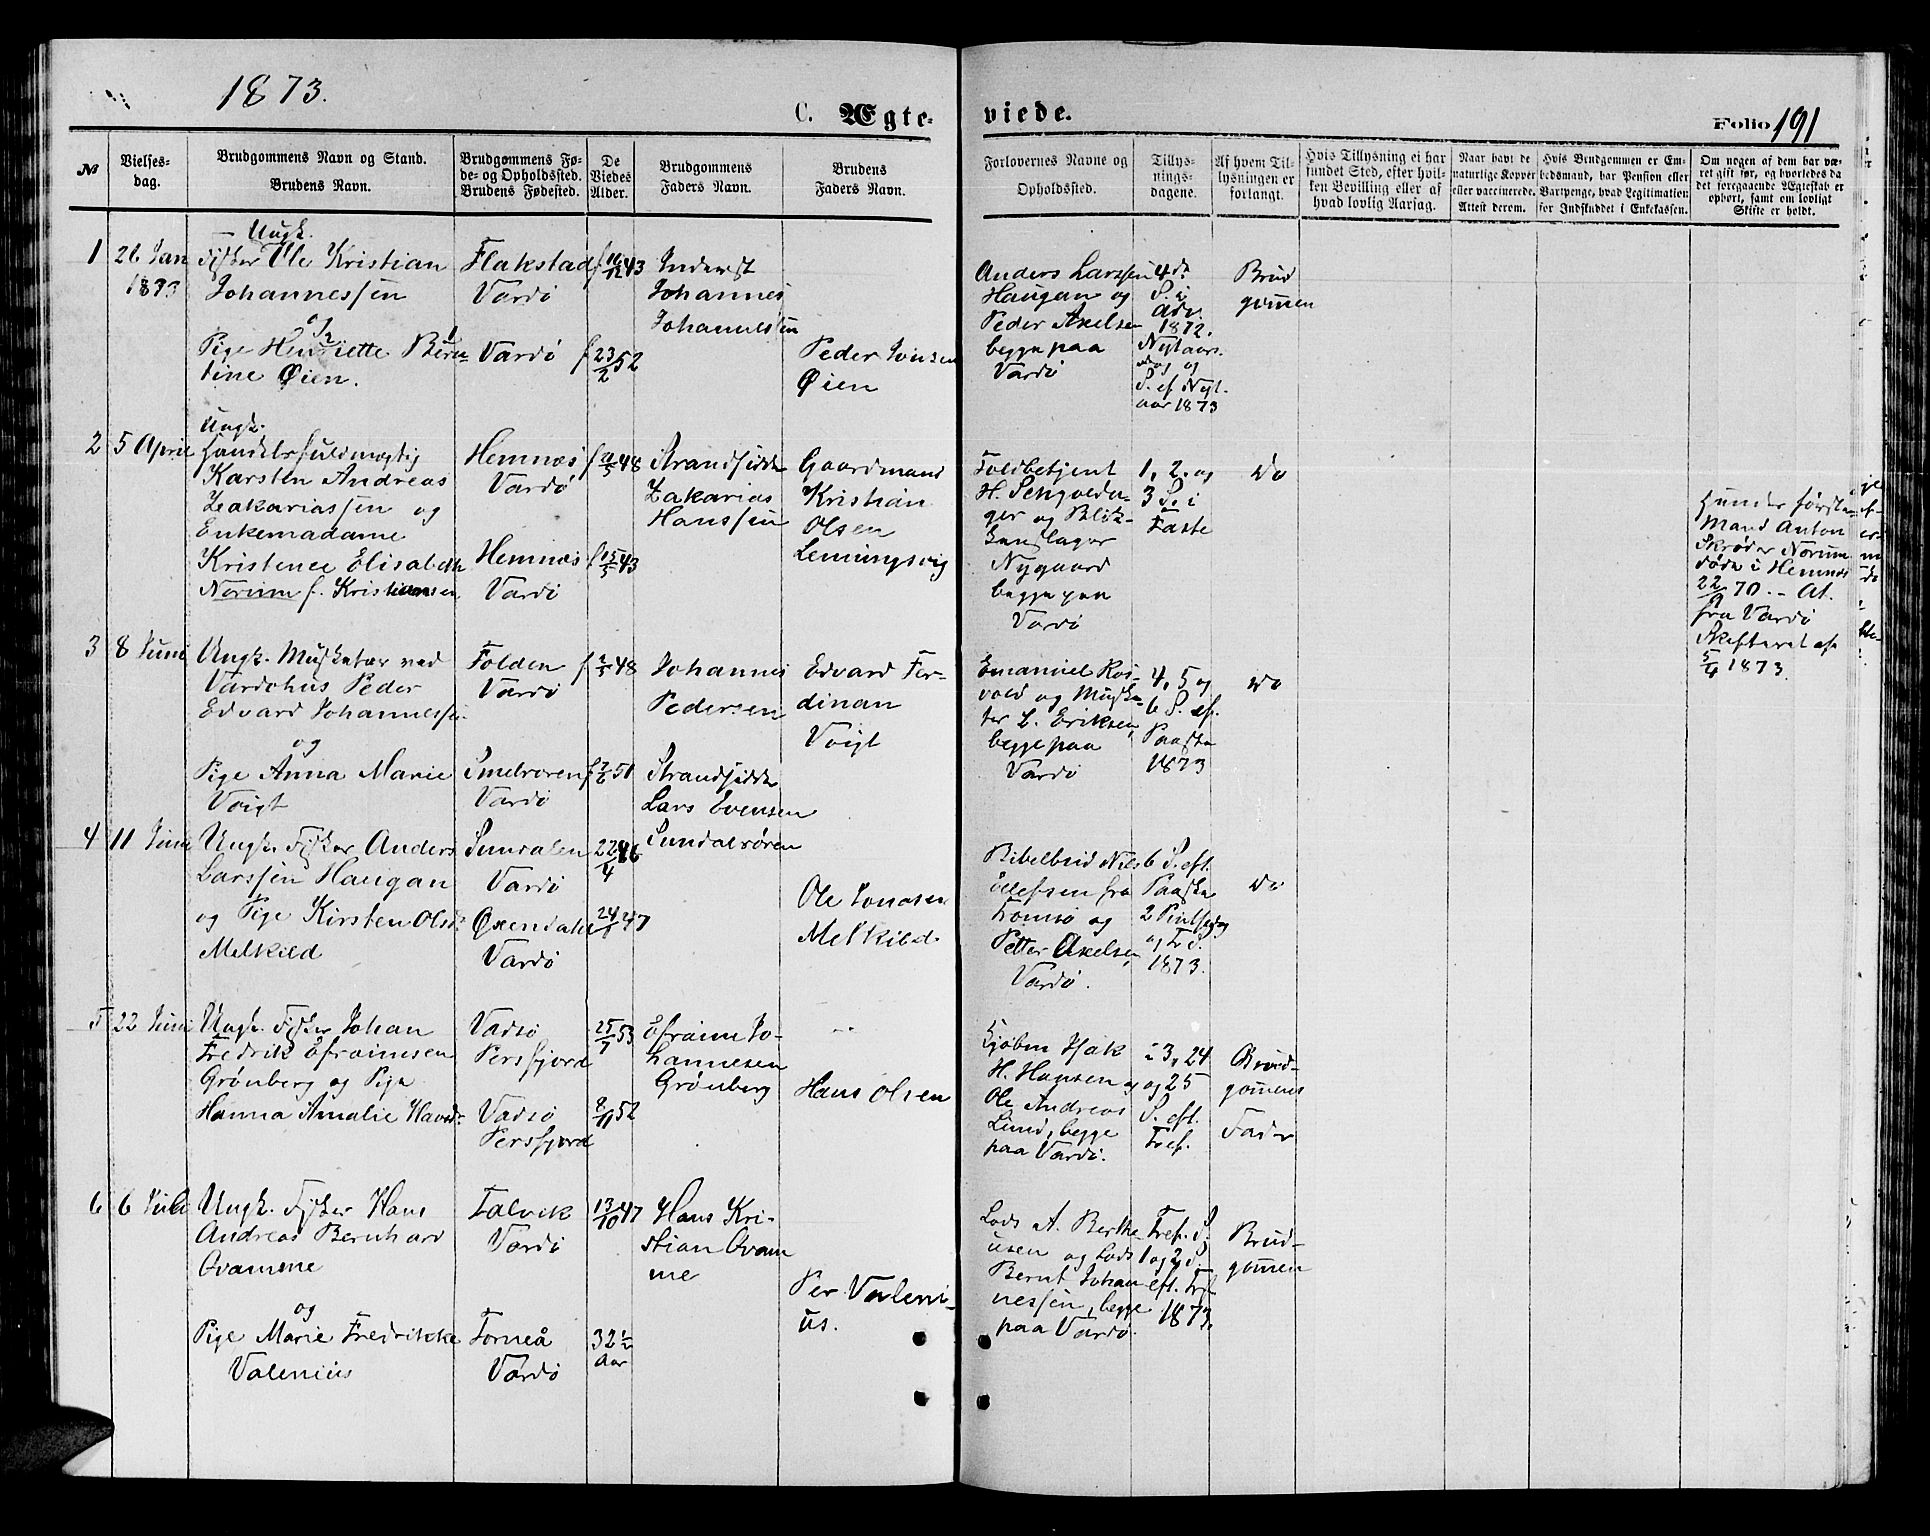 1873.
C. Ægte-
viede.
Folio 191
No
Vielses-
dag.
Brudgommens Navn og Stand.
Brudens Navn.
Brudgommens Fø-
de- og Opholdssted.
Brudens Fødested.
De
Viedes
Alder.
Brudgommens
Faders Navn.
Brudens
Faders Navn.
Forlovernes Navne og
Opholdssted.
Tillys-
nings-
dagene.
Af hvem Til-
lysningen er
forlangt.
Hvis Tillysning ei har
fundet Sted, efter hvil-
ken Bevilling eller af
hvad lovlig Aarsag.
Naar havt de
naturlige Kopper
eller vaccinerede.
Attest derom.
Hvis Brudgommen er Em-
bedsmand, har Pension eller
Vartpenge, hvad Legitimation
for Indskuddet i Enkekassen.
Om nogen af dem har væ-
ret gift før, og hvorledes da
det foregaaende Ægteskab er
ophørt, samt om lovligt
Skifte er holdt.
1
26 Jan
1873
Ungk.
Fisker Ole Kristian
Johannessen
og
Pige Henriette Bern-
tine Øien.
Flakstad
Vardø
Vardø
43
f 23/2 52
Inderst
Johannes
Johannessen
Peder Jonsen
Øien
Anders Larssen
Haugan og
Peder Axelsen
begge paa
Vardø
4de
S. i
Adv.
1872.
Nytaars-
dag og
S. ef. Nyt-
aar 1873
Brud
gommen
2
5 April
Ungk.
Handelsfuldmægtig
Karsten Andreas
Zakariassen og
Enkemadame
Kristence Elisabeth
Norum f. Kristiansen
Hemnæs
Vardø
Hemnæs
Vardø
48
f 15/5 43
Strandsidder
Zakarias
Hanssen
Gaardmand
Kristian
Olsen
Lemingsvig
Toldbetjent
og Blik-
kenslager
Nygaard
begge paa
Vardø
1, 2, og
3 S. i
Faste
Do
Hundes første
Mand Anton
Skrøder Norum
døde i Hemnæs
22/9 70. - At.
fra Vardø
Skifteret af
5/4 1873.
3
8 Juni
Ungk. Musketer ved
Vardøhus Peder
Edvard Johannessen
og
Pige Anna Marie
Voigt
Folden
Vardø
Smelroren
Vardø
48
51
Johannes
Pedersen
Edvard Fer-
dinan
Voigt
Emanuel Ros-
vold og Muske-
ter L. Eriksen,
begge paa
Vardø
4, 5 og
6 S. ef.
Paaske
1873
Do
4
11 Juni
Ungk. Fisker Anders
Larssen Haugan
og Pige Kirsten Olsd.
Melkild
Sundalen
Vardø
Øxendalen
Vardø
22/4 46
47
Strandsidder
Lars Evensen
Sundalsøren
Ole Jonasen
Melkild
Bibelbud Nils
Olefsen fra
Tromsø og
Petter Axelsen,
Vardø.
6 S. eft.
Paaske
2 Pintsedag
og Tr. S.
1873.
Do
5
22 Juni
Ungk. Fisker Johan
Fredrik Efraimsen
Grønberg og Pige
Hanna Amalie Hansd.
Vadsø
Persfjord
Vadsø
Persfjord
25/7 53
8/11 52
Efraim Jo-
hannesen
Grønberg
Hans Olsen
Kjøbm Isak
H. Hansen og
Ole Andreas
Lund, begge
paa Vardø.
23, 24
og 25
S. eft.
Tref.
Brud-
gommens
Fader
6
6 Juli
Ungk. Fisker Hans
Andreas Bernhard
Qvamme
og
Pige Marie Fredrikke
Valenius
Talvik
Vardø
Torneå
Vardø
13/10 47
32 1/2
Aar
Hans Kri-
stian Qvam
me
Per Valeni-
us.
Lods A. Berthe-
usen og Lods
Bernt Johan
nessen, begge
paa Vardø.
Tref. S.
1 og 2 S.
eft. Tref
1873.
Brud-
gommen